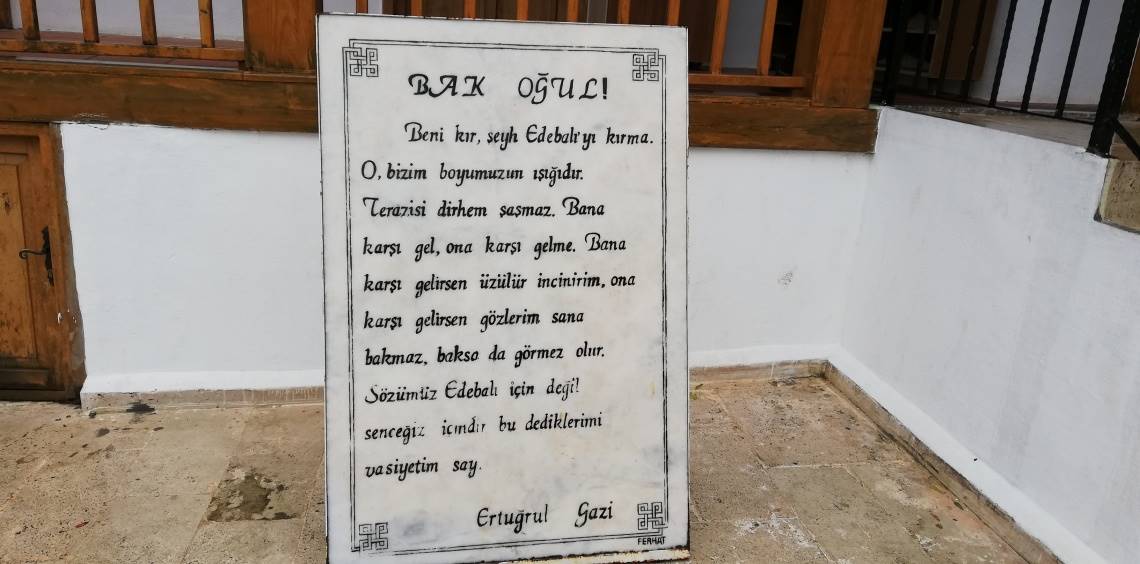 BAK OĞUL!
Beni kır, şeyh Edebalı'yı kırma.
O, bizim boyumuzun ışığıdır.
Terazisi dirhem şaşmaz. Bana
karşı gel, ona karşı gelme. Bana
karşı gelirsen üzülür incinirim, ona
karşı gelirsen gözlerim sana
bakmaz, baksa da görmez olur.
Sözümüz Edebalı için değil
senceğiz içindir bu dediklerimi
vasiyetim say.
Ertuğrul Gazi
FERHAT